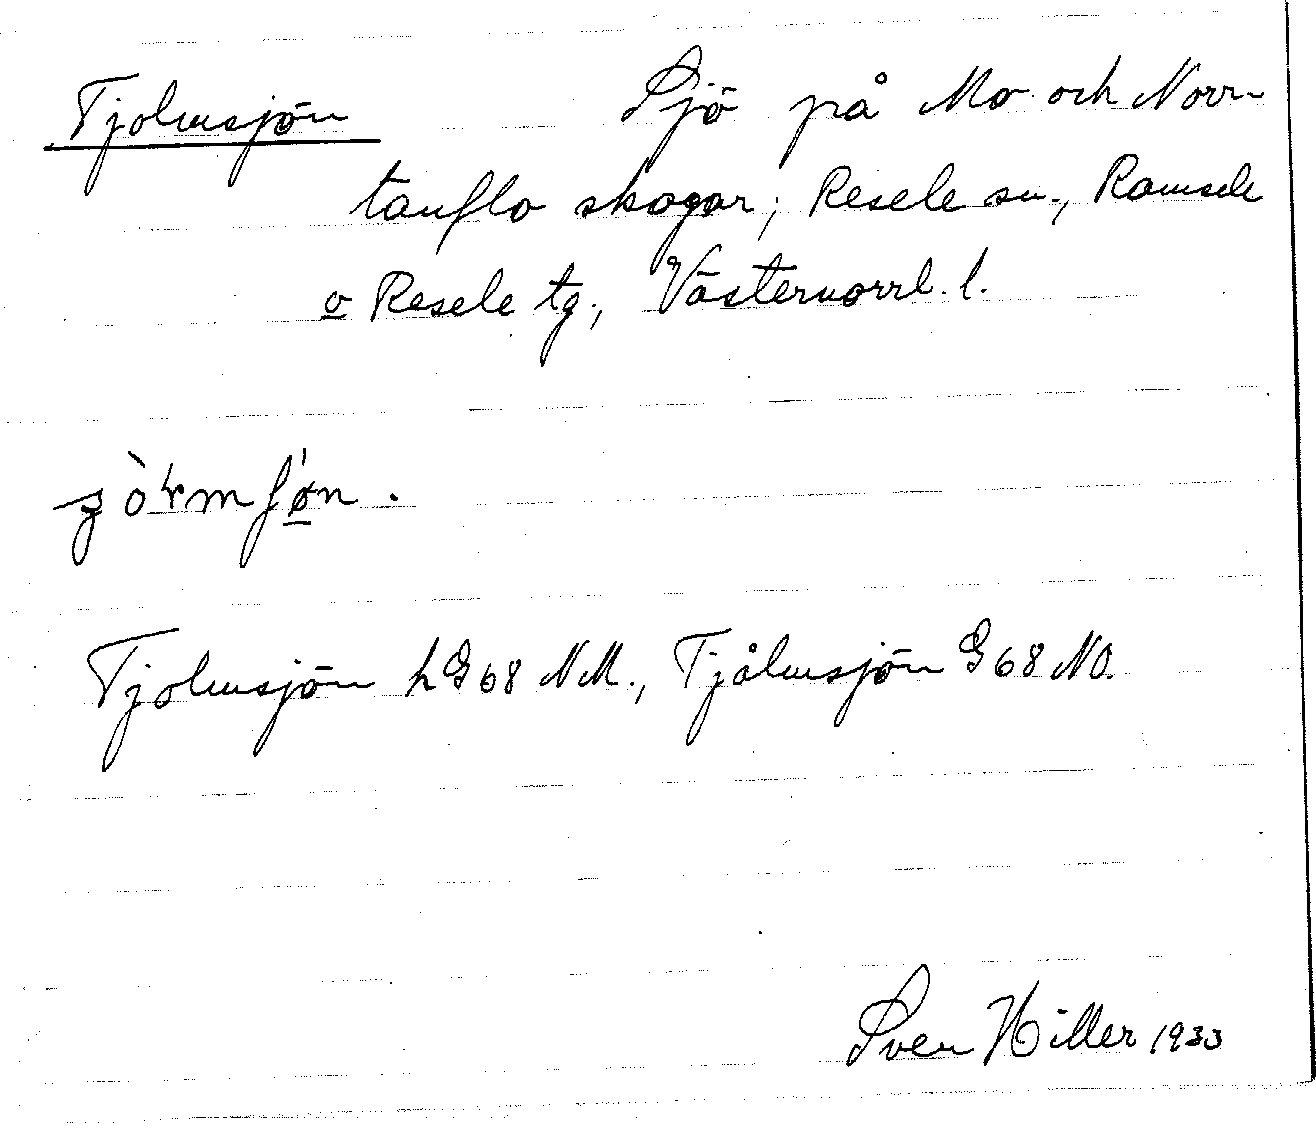 Tjolmsjön Sjö på Mo och Norr-
tanflo skogar; Resele sn., Ramsele
o Resele tg., Västernorrl. l.
Tjolmsjön h G 68 NM., Tjålmsjön G 68 NO.
Sven Hiller 1933